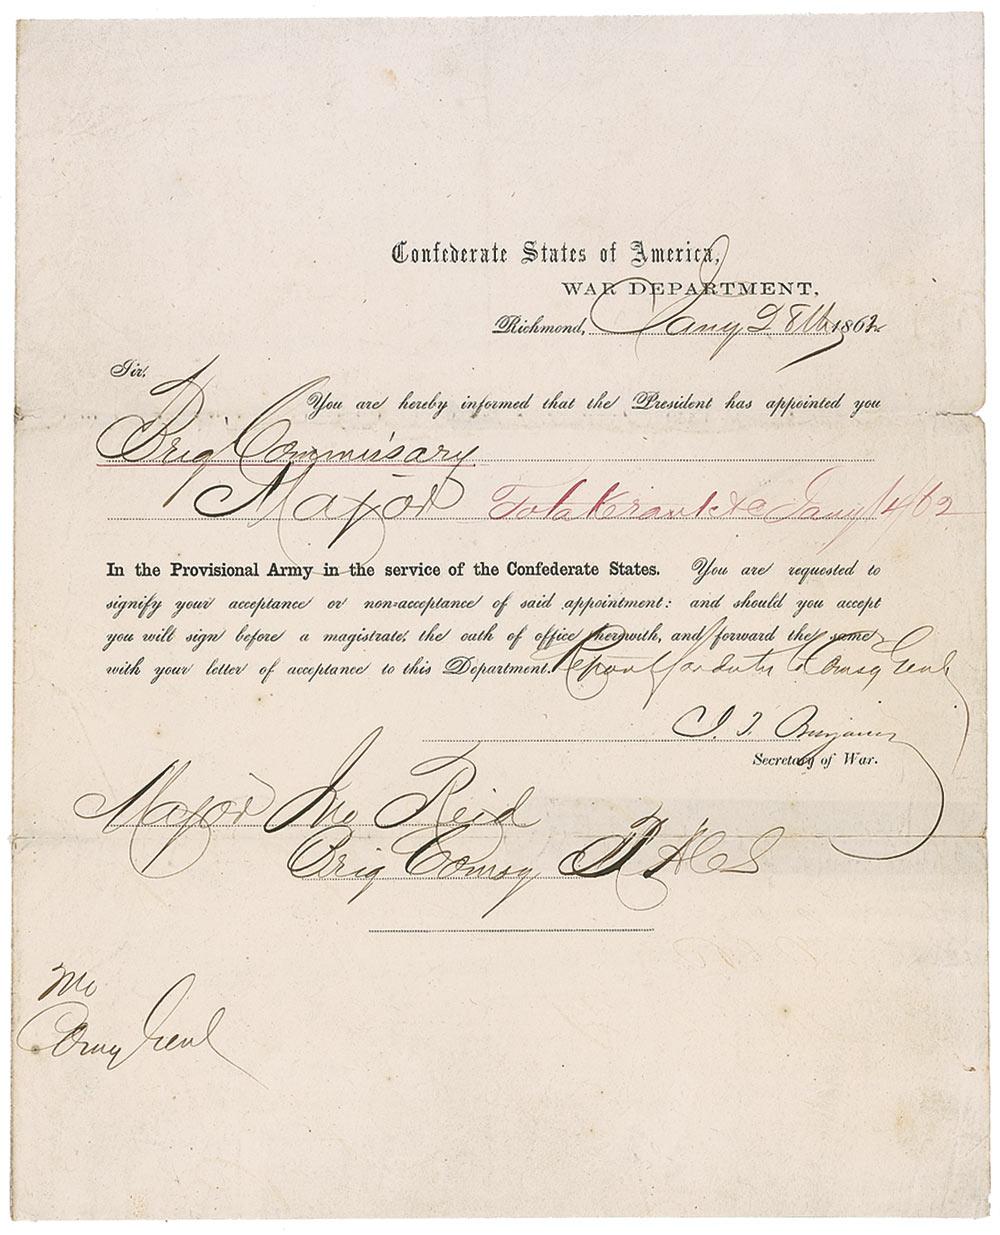 Confederate States of America,
WAR DEPARTMENT,
Richmond, Jany 28th 1862
Sir:
You are hereby informed that the President has appointed you
Brig Commissary
Major To take rank &c Jany 14/62
In the Provisional Army in the service of the Confederate States. You are requested to
signify your acceptance or non-acceptance of said appointment: and should you accept
you will sign before a magistrate, the oath of office herewith, and forward the same
with your letter of acceptance to this Department. Report for duty to Comsy Genl
J. P. Benjamin
Secretary of War.
Major Jno Reid
Brig Comsy P A C S
Mo
Comy Genl